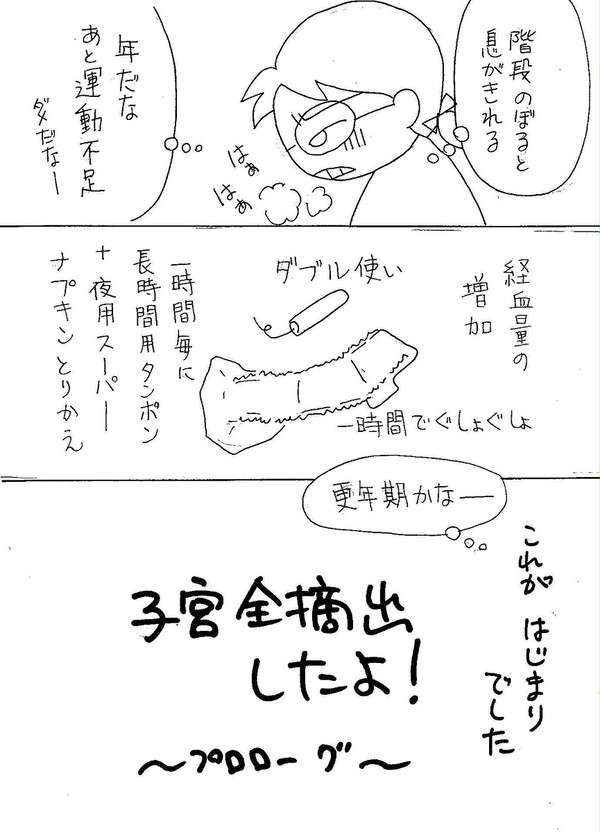 階段のぼると
息がきれる
はぁ
はぁ
年だな
あと運動不足
ダメだなー
経血量の
増加
ダブル使い
一時間でぐしょぐしょ
一時間毎に
長時間用タンポン
+夜用スーパー
ナプキンとりかえ
更年期かなー
これが はじまり
でした
子宮全摘出
したよ!
〜プロローグ〜